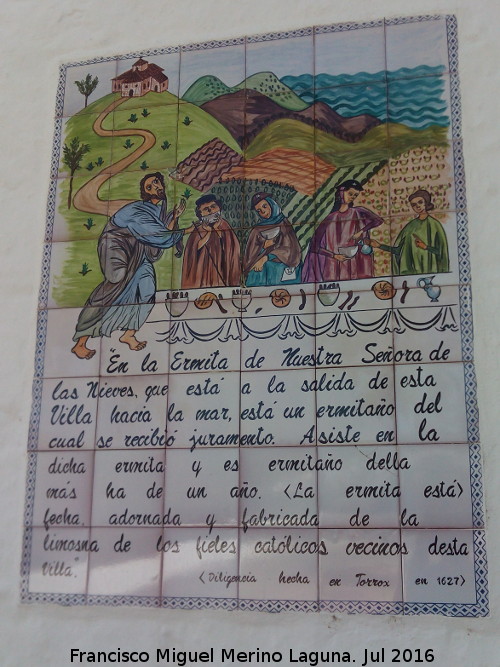 "En la Ermita de Nuestra Señora de
las Nieves, que está a la salida de esta
Villa hacia la mar, está un ermitaño del
cual se recibió juramento. Asiste en la
dicha ermita y es ermitaño della
más ha de un año. <La ermita está>
fecha, adornada y fabricada de la
limosna de los fieles católicos vecinos desta
villa".
<Diligencia hecha en Torrox en 1627>
Francisco Miguel Merino Laguna. Jul 2016